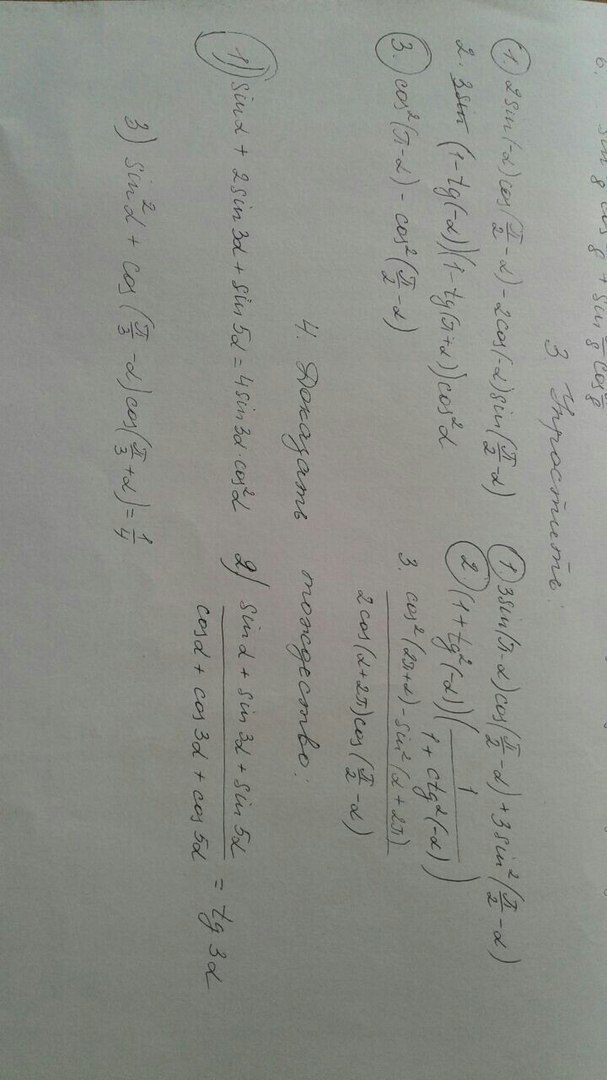 3 Упростить:
1. 2sin(-α)cos(π/2 - α) - 2cos(-α)sin(π/2 - α)
2. (1-tg(-α))(1-tg(π+α))cos²α
3. cos²(π-α) - cos²(π/2 - α)
1. 3sin(π-α)cos(π/2 - α) + 3sin²(π/2 - α)
2. (1+tg²(-α))(1/(1+ctg²(-α)))
3. (cos²(2π+α) - sin²(α+2π))/(2cos(α+2π)cos(π/2 - α))
4. Доказать тождество:
1) sinα + 2sin3α + sin5α = 4sin3α·cos²α
2) (sinα + sin3α + sin5α)/(cosα + cos3α + cos5α) = tg3α
3) sin²α + cos(π/3 - α)cos(π/3 + α) = 1/4